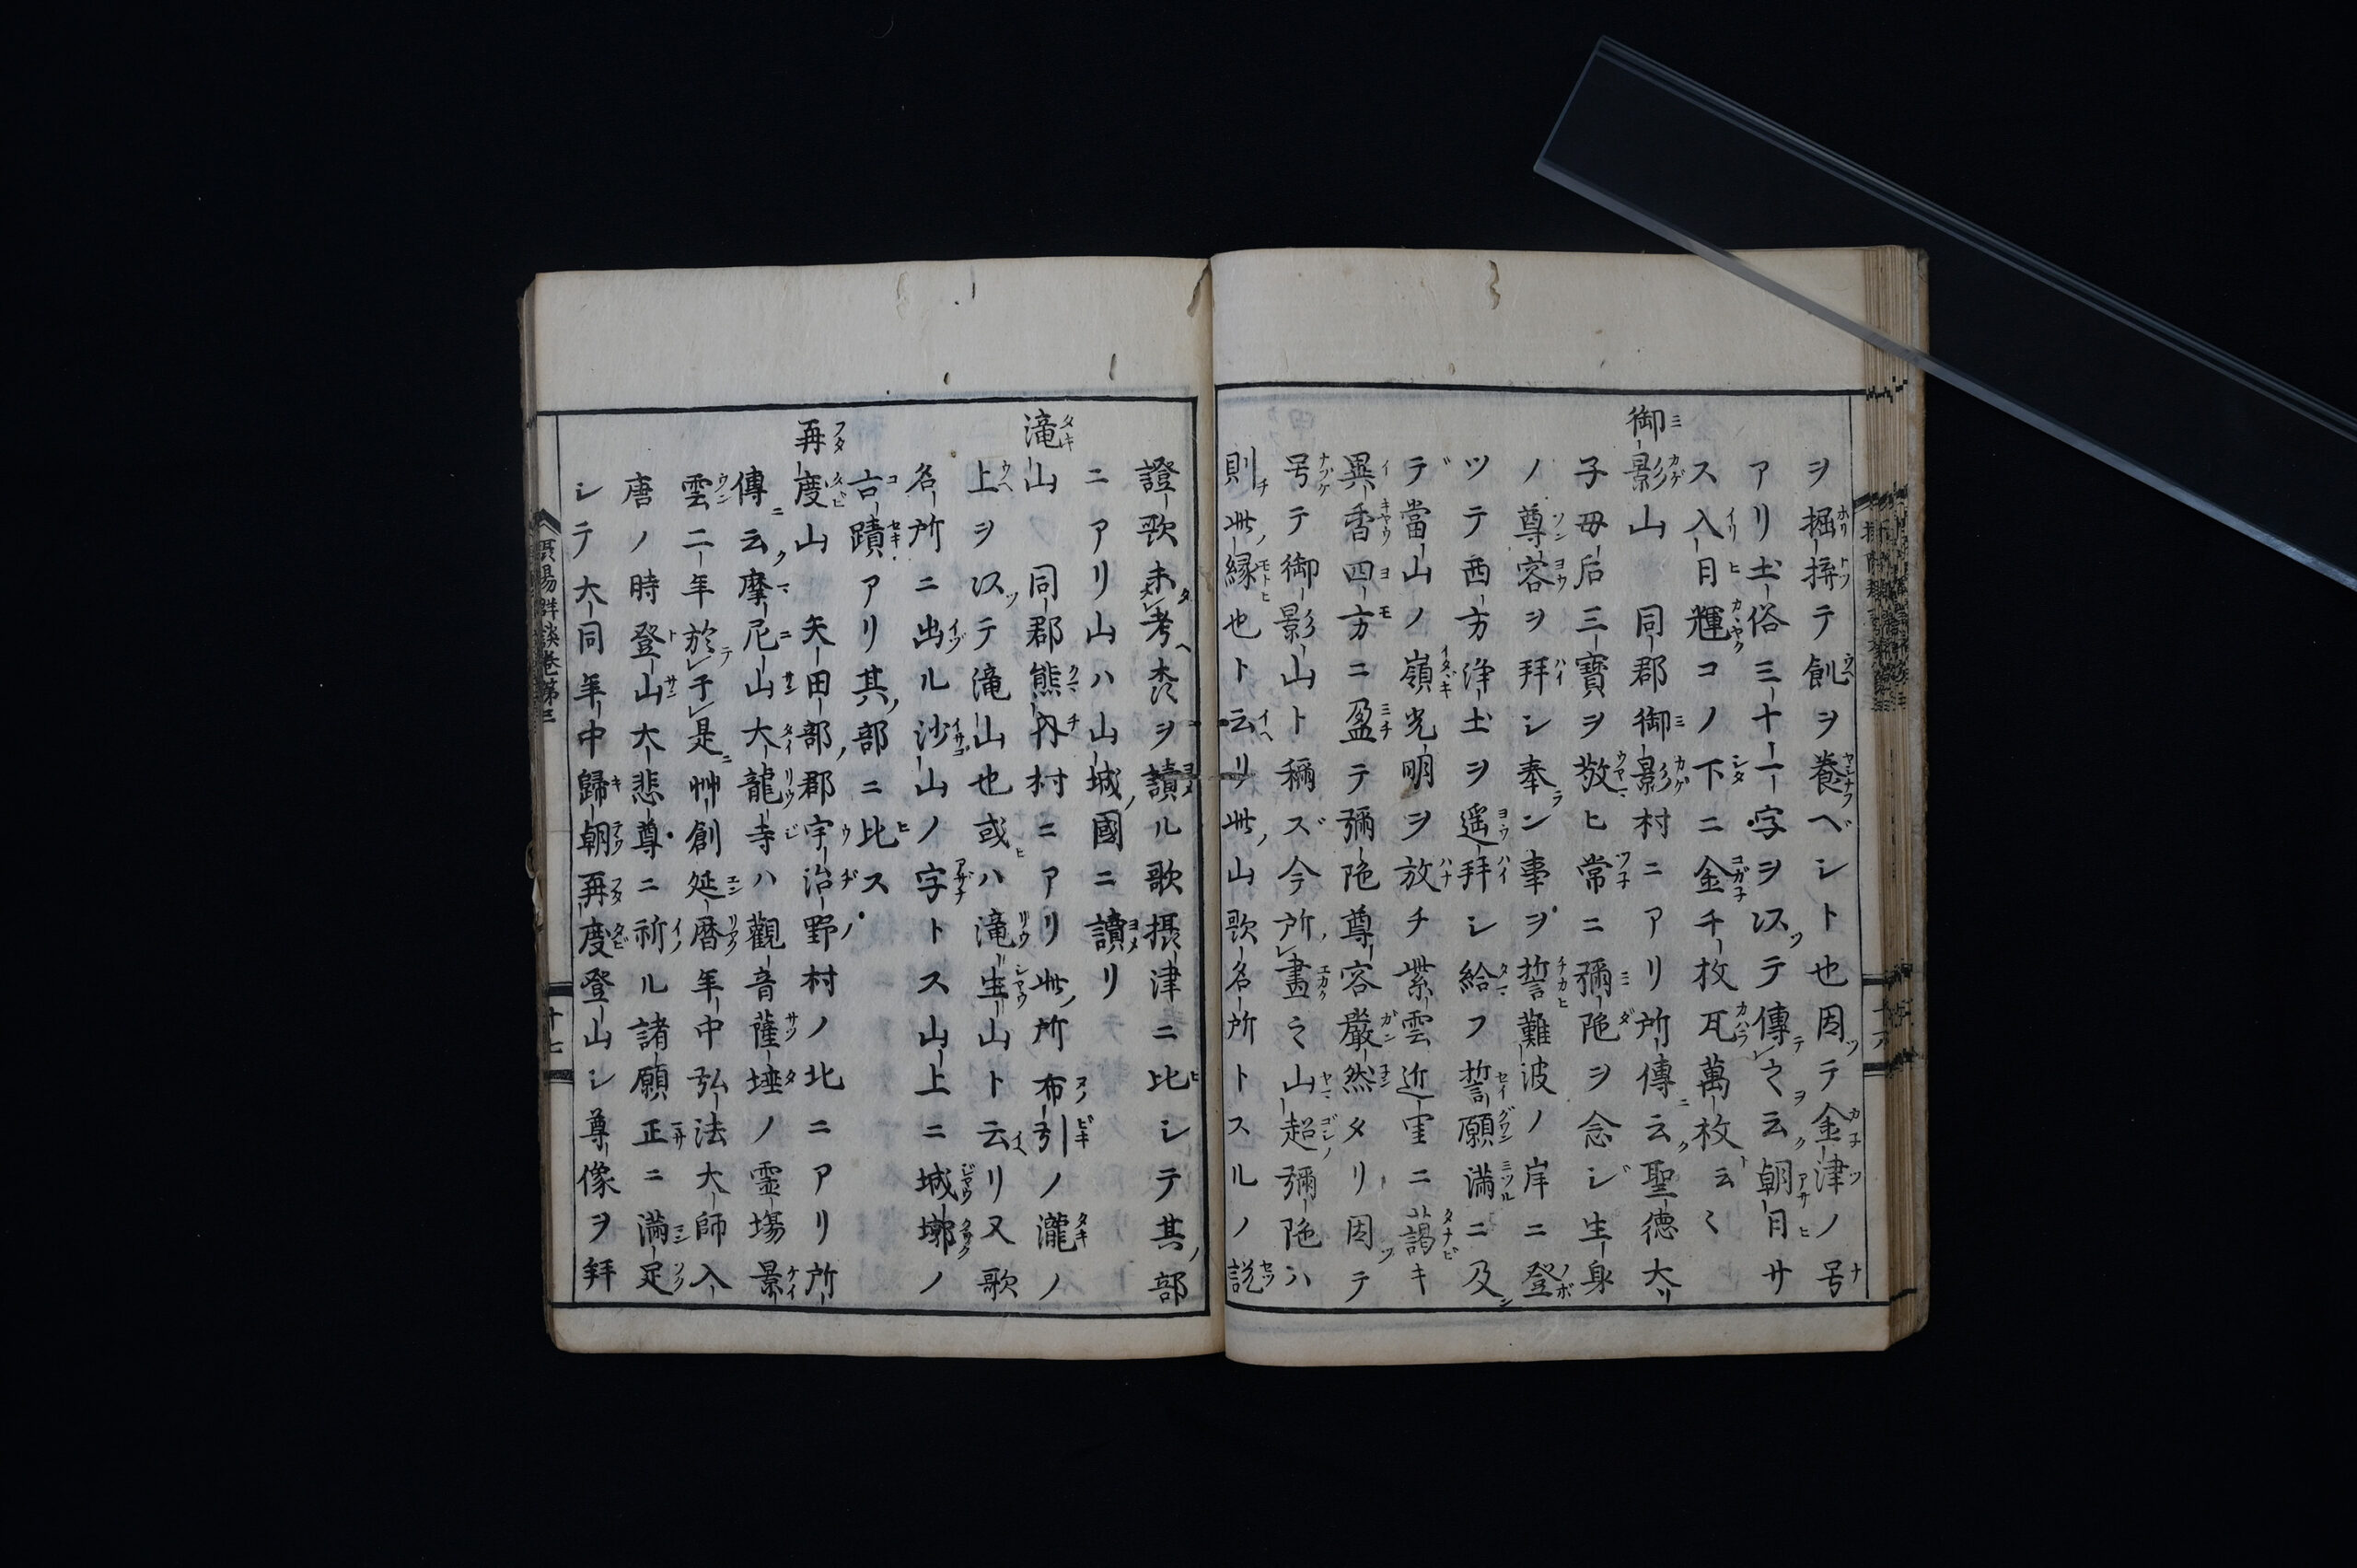 ヲ掘拚テ創ヲ養ベシト也因テ金津ノ号
アリ土俗三十一字ヲ以テ傳之云朝日サ
ス入日輝コノ下ニ金千枚瓦萬枚云〻
御影山 同郡御影村ニアリ所傳云聖徳大
子毋后三寳ヲ敬ヒ常ニ彌陁ヲ念ジ生身
ノ尊容ヲ拜シ奉ラン事ヲ誓難波ノ岸ニ登
ツテ西方浄土ヲ遥拜シ給フ誓願満ニ及
デ當山ノ嶺光明ヲ放チ紫雲近里ニ靄キ
異香四方ニ盈テ彌陁尊容嚴然タリ因テ
号テ御影山ト稱ズ今所畫之山超彌陁ハ
則此縁也ト云リ此山歌名所トスルノ説
證歌未考柰ヲ讀ル歌摂津ニ比シテ其部
ニアリ山ハ山城國ニ讀リ
滝山 同郡熊内村ニアリ此所布引ノ瀧ノ
上ヲ以テ滝山也或ハ滝生山ト云リ又歌
名所ニ出ル沙山ノ字トス山上ニ城墎ノ
古蹟アリ其部ニ比ス
再度山 矢田部郡宇治野村ノ北ニアリ所
傳云摩尼山大龍寺ハ觀音薩埵ノ霊場景
雲二年於于是艸創延暦年中弘法大師入
唐ノ時登山大悲尊ニ祈ル諸願正ニ満足
シテ大同年中歸朝再度登山シ尊像ヲ拜
摂陽群談巻第三 十七